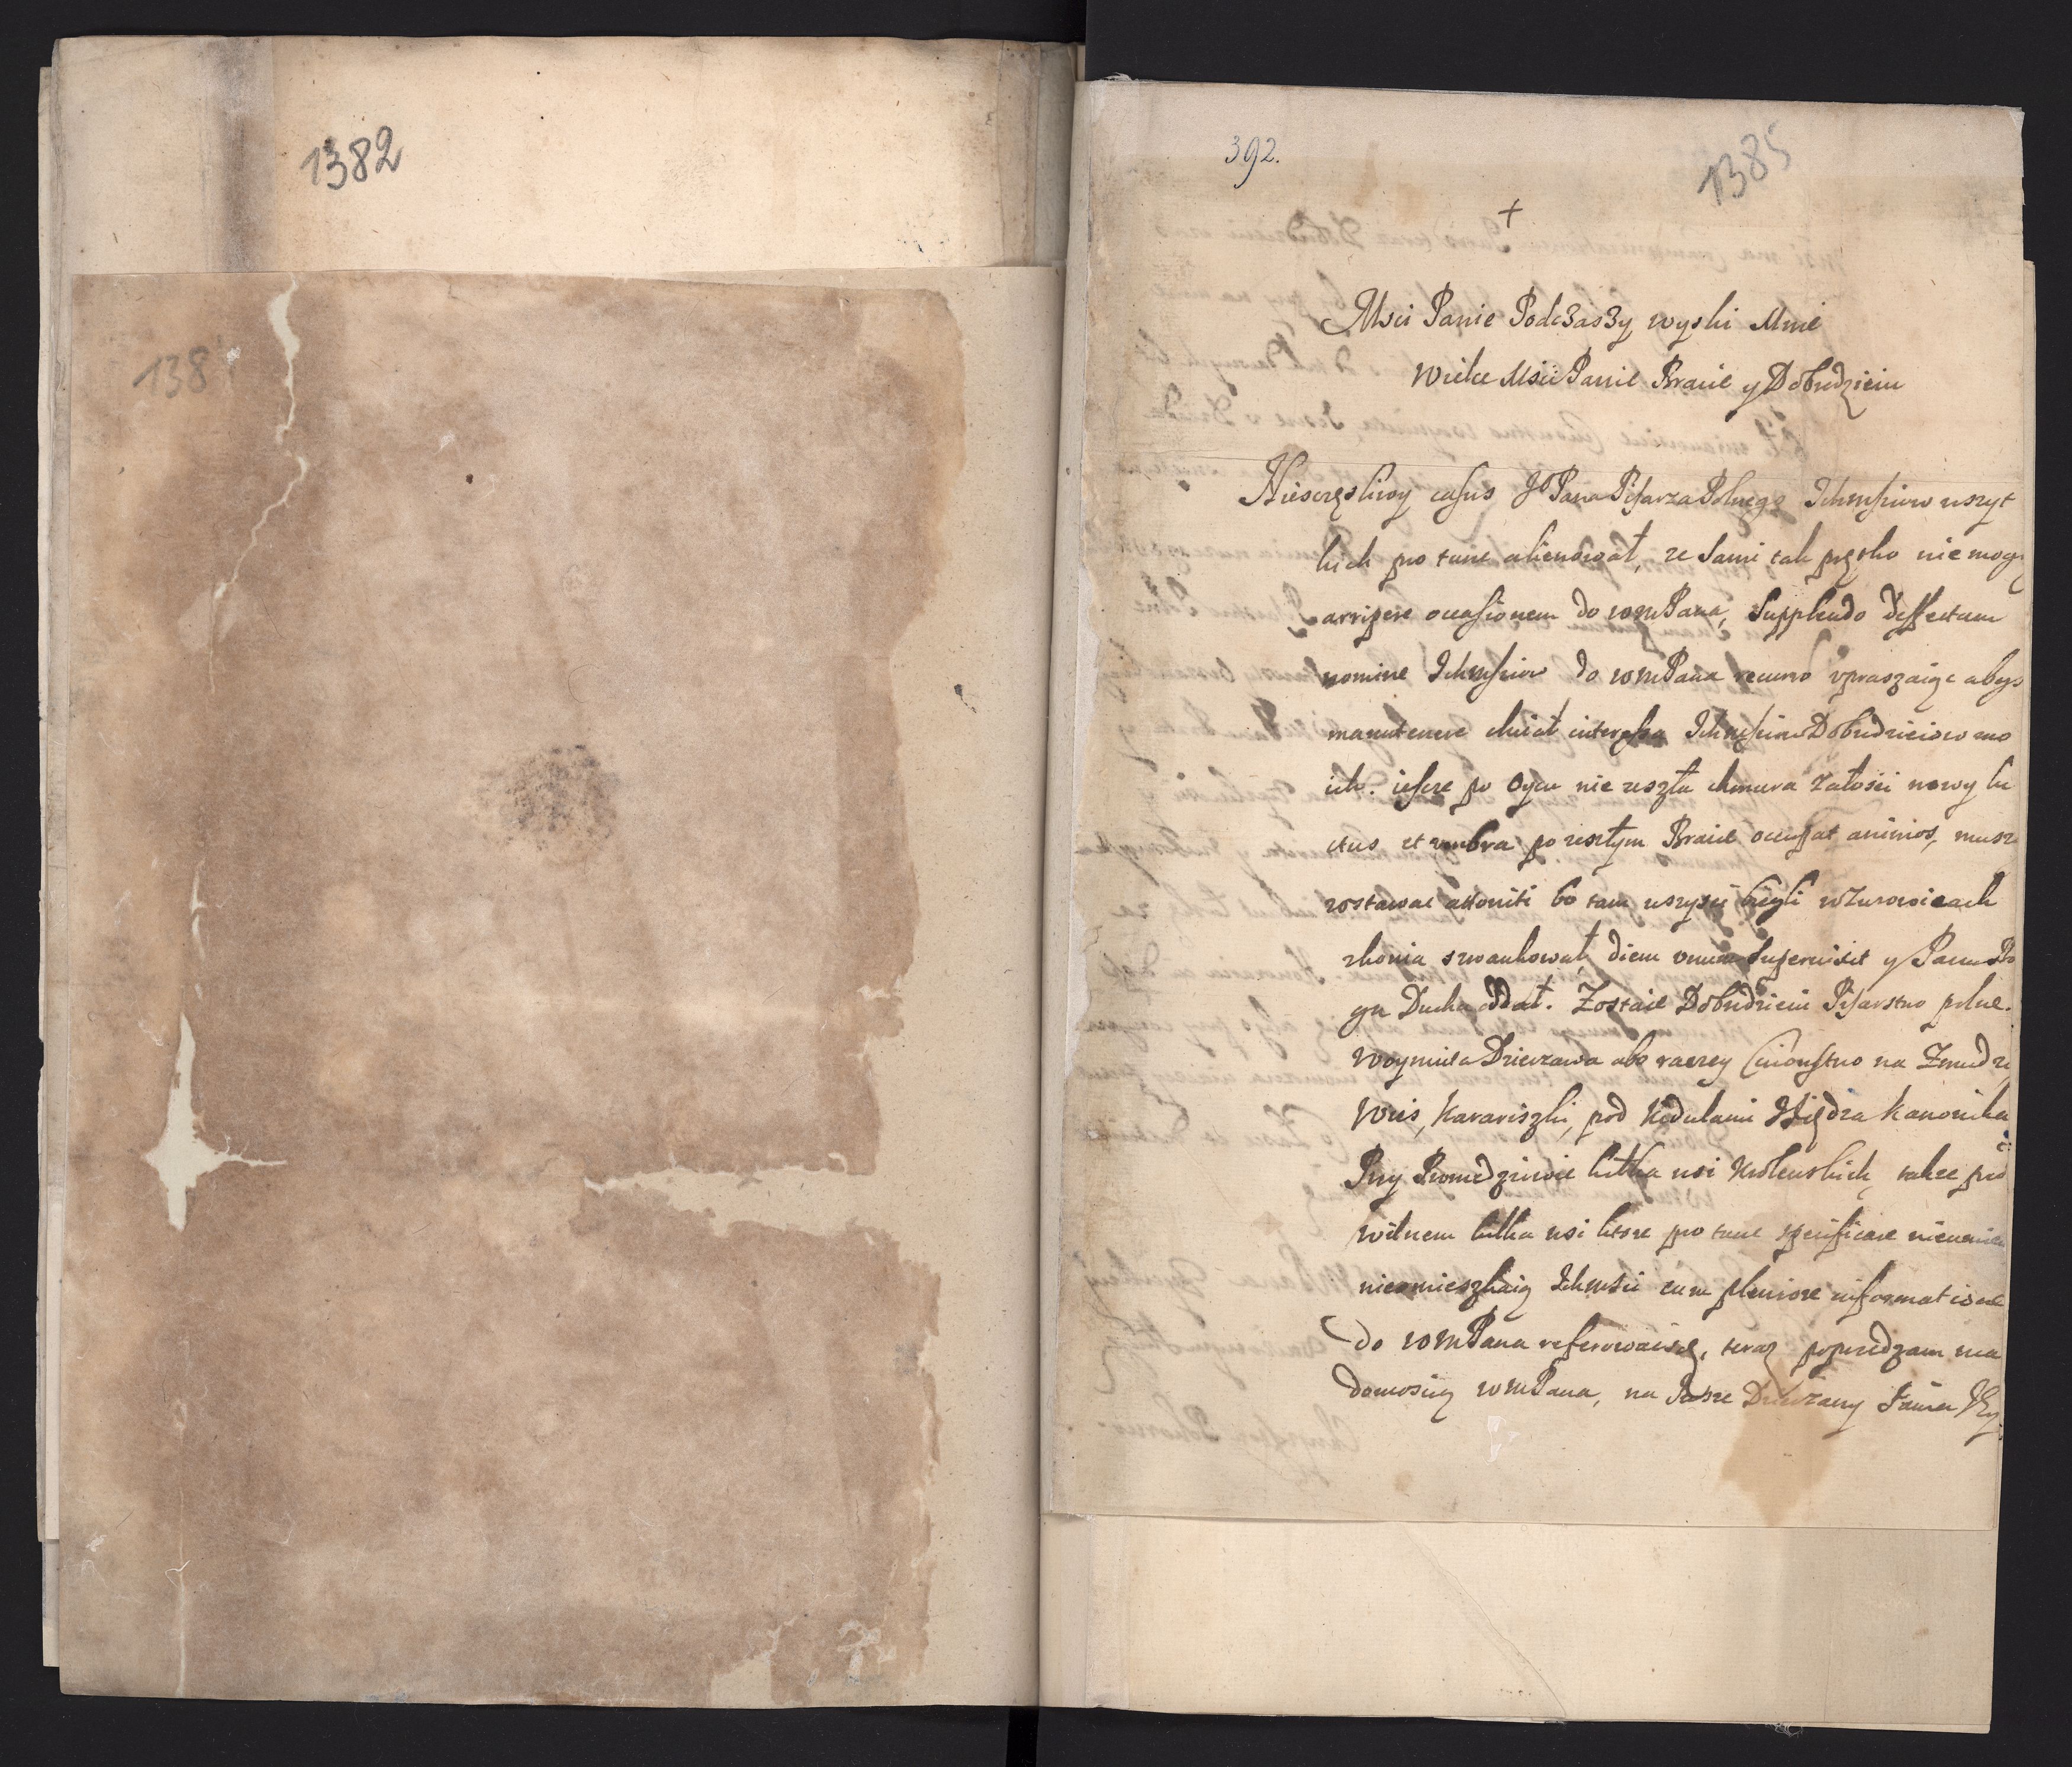 1382
138
392.
1385
+
Msci Panie Podczaszy wyski Mnie
Wielce Msci Panie Bracie y Dobrodzieiu
Niesczęsliwy casus JP Pana Pisarza Polnego Ichmsciow wszyt
kich pro tunc alienował, ze sami tak prętko nie mogą
arripere occasionem do wmPana, Supplendo deffectum
nomine Ichmsciow do wmPana recurro vpraszaiąc abys
manutenere chciał interessa Ichmsciow Dobrodzieiow mo
ich. iescze po Oycu nie zeszła chmura załosci nowy lu
ctus et umbra po zeszłym Bracie occupat animos, musz
zostawac attoniti bo tam wszysci biegli w Zurowicach
zkonia szwankował, diem unum supervixit y Panu Bo
gu Ducha oddał. Zostaie Dobrodzieiu Pisarstwo polne.
Woymiła Dzierzawa abo raczey Ciwonstwo na Zmudzi,
Wies, Karaviszki, pod Kiedulami Xiędza Kanonika
Przy Promedziowie kilka wsi Krolewskich, takze pod
wilnem kilka wsi ktore pro tunc specificare nieumiem
nieomieszkaią Ichmsci cum pleniore informatione
do wmPana referowac się, teraz poprzedzam wia
domoscią wmPana, na ktore Dzierzawy Fama